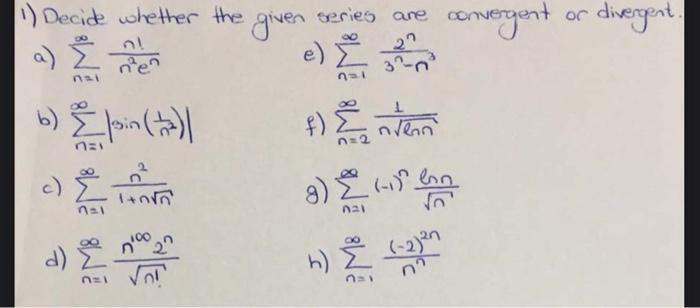 1) Decide whether the given series are convergent or divergent.
a) ∑_{n=1}^{∞} n!/(n²eⁿ)
e) ∑_{n=1}^{∞} 2ⁿ/(3ⁿ-n³)
b) ∑_{n=1}^{∞} |sin(1/n²)|
f) ∑_{n=2}^{∞} 1/(n√(ln n))
c) ∑_{n=1}^{∞} n²/(1+n√n)
g) ∑_{n=1}^{∞} (-1)ⁿ ln n/√n
d) ∑_{n=1}^{∞} n¹⁰⁰ 2ⁿ/√(n!)
h) ∑_{n=1}^{∞} (-2)²ⁿ/nⁿ